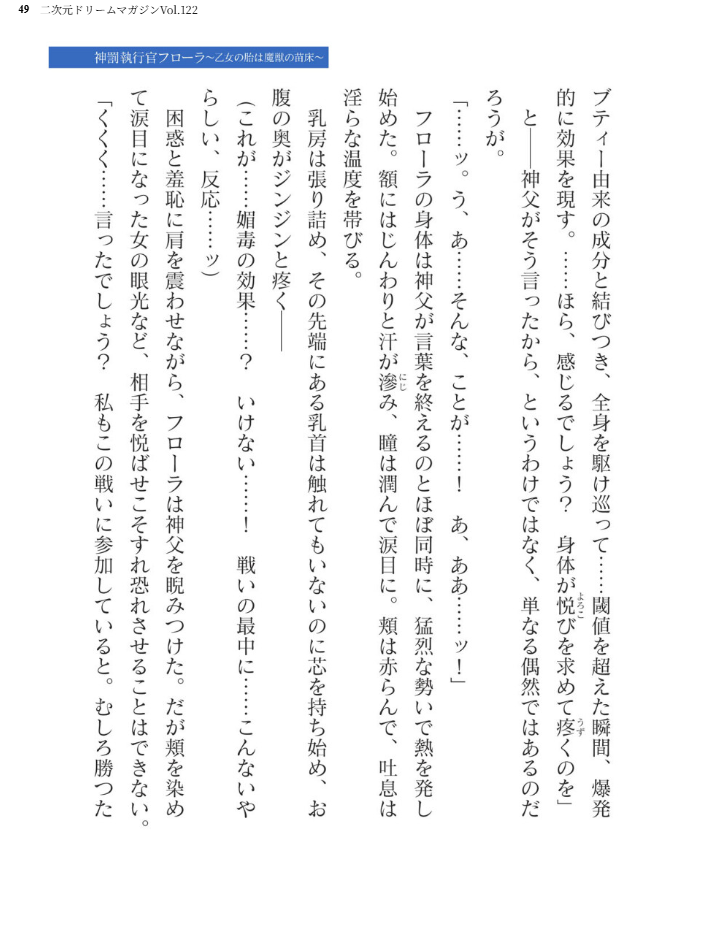 49 二次元ドリームマガジンVol.122
神罰執行官フローラ～乙女の胎は魔獣の苗床～
ブティー由来の成分と結びつき、全身を駆け巡って……閾値を超えた瞬間、爆発
的に効果を現す。……ほら、感じるでしょう？　身体が悦びを求めて疼くのを」
　と――神父がそう言ったから、というわけではなく、単なる偶然ではあるのだ
ろうが。
「……ッ。う、あ……そんな、ことが……！　あ、ああ……ッ！」
　フローラの身体は神父が言葉を終えるのとほぼ同時に、猛烈な勢いで熱を発し
始めた。額にはじんわりと汗が滲み、瞳は潤んで涙目に。頬は赤らんで、吐息は
淫らな温度を帯びる。
　乳房は張り詰め、その先端にある乳首は触れてもいないのに芯を持ち始め、お
腹の奥がジンジンと疼く――
（これが……媚毒の効果……？　いけない……！　戦いの最中に……こんないや
らしい、反応……ッ）
　困惑と羞恥に肩を震わせながら、フローラは神父を睨みつけた。だが頬を染め
て涙目になった女の眼光など、相手を悦ばせこそすれ恐れさせることはできない。
「くくく……言ったでしょう？　私もこの戦いに参加していると。むしろ勝つた